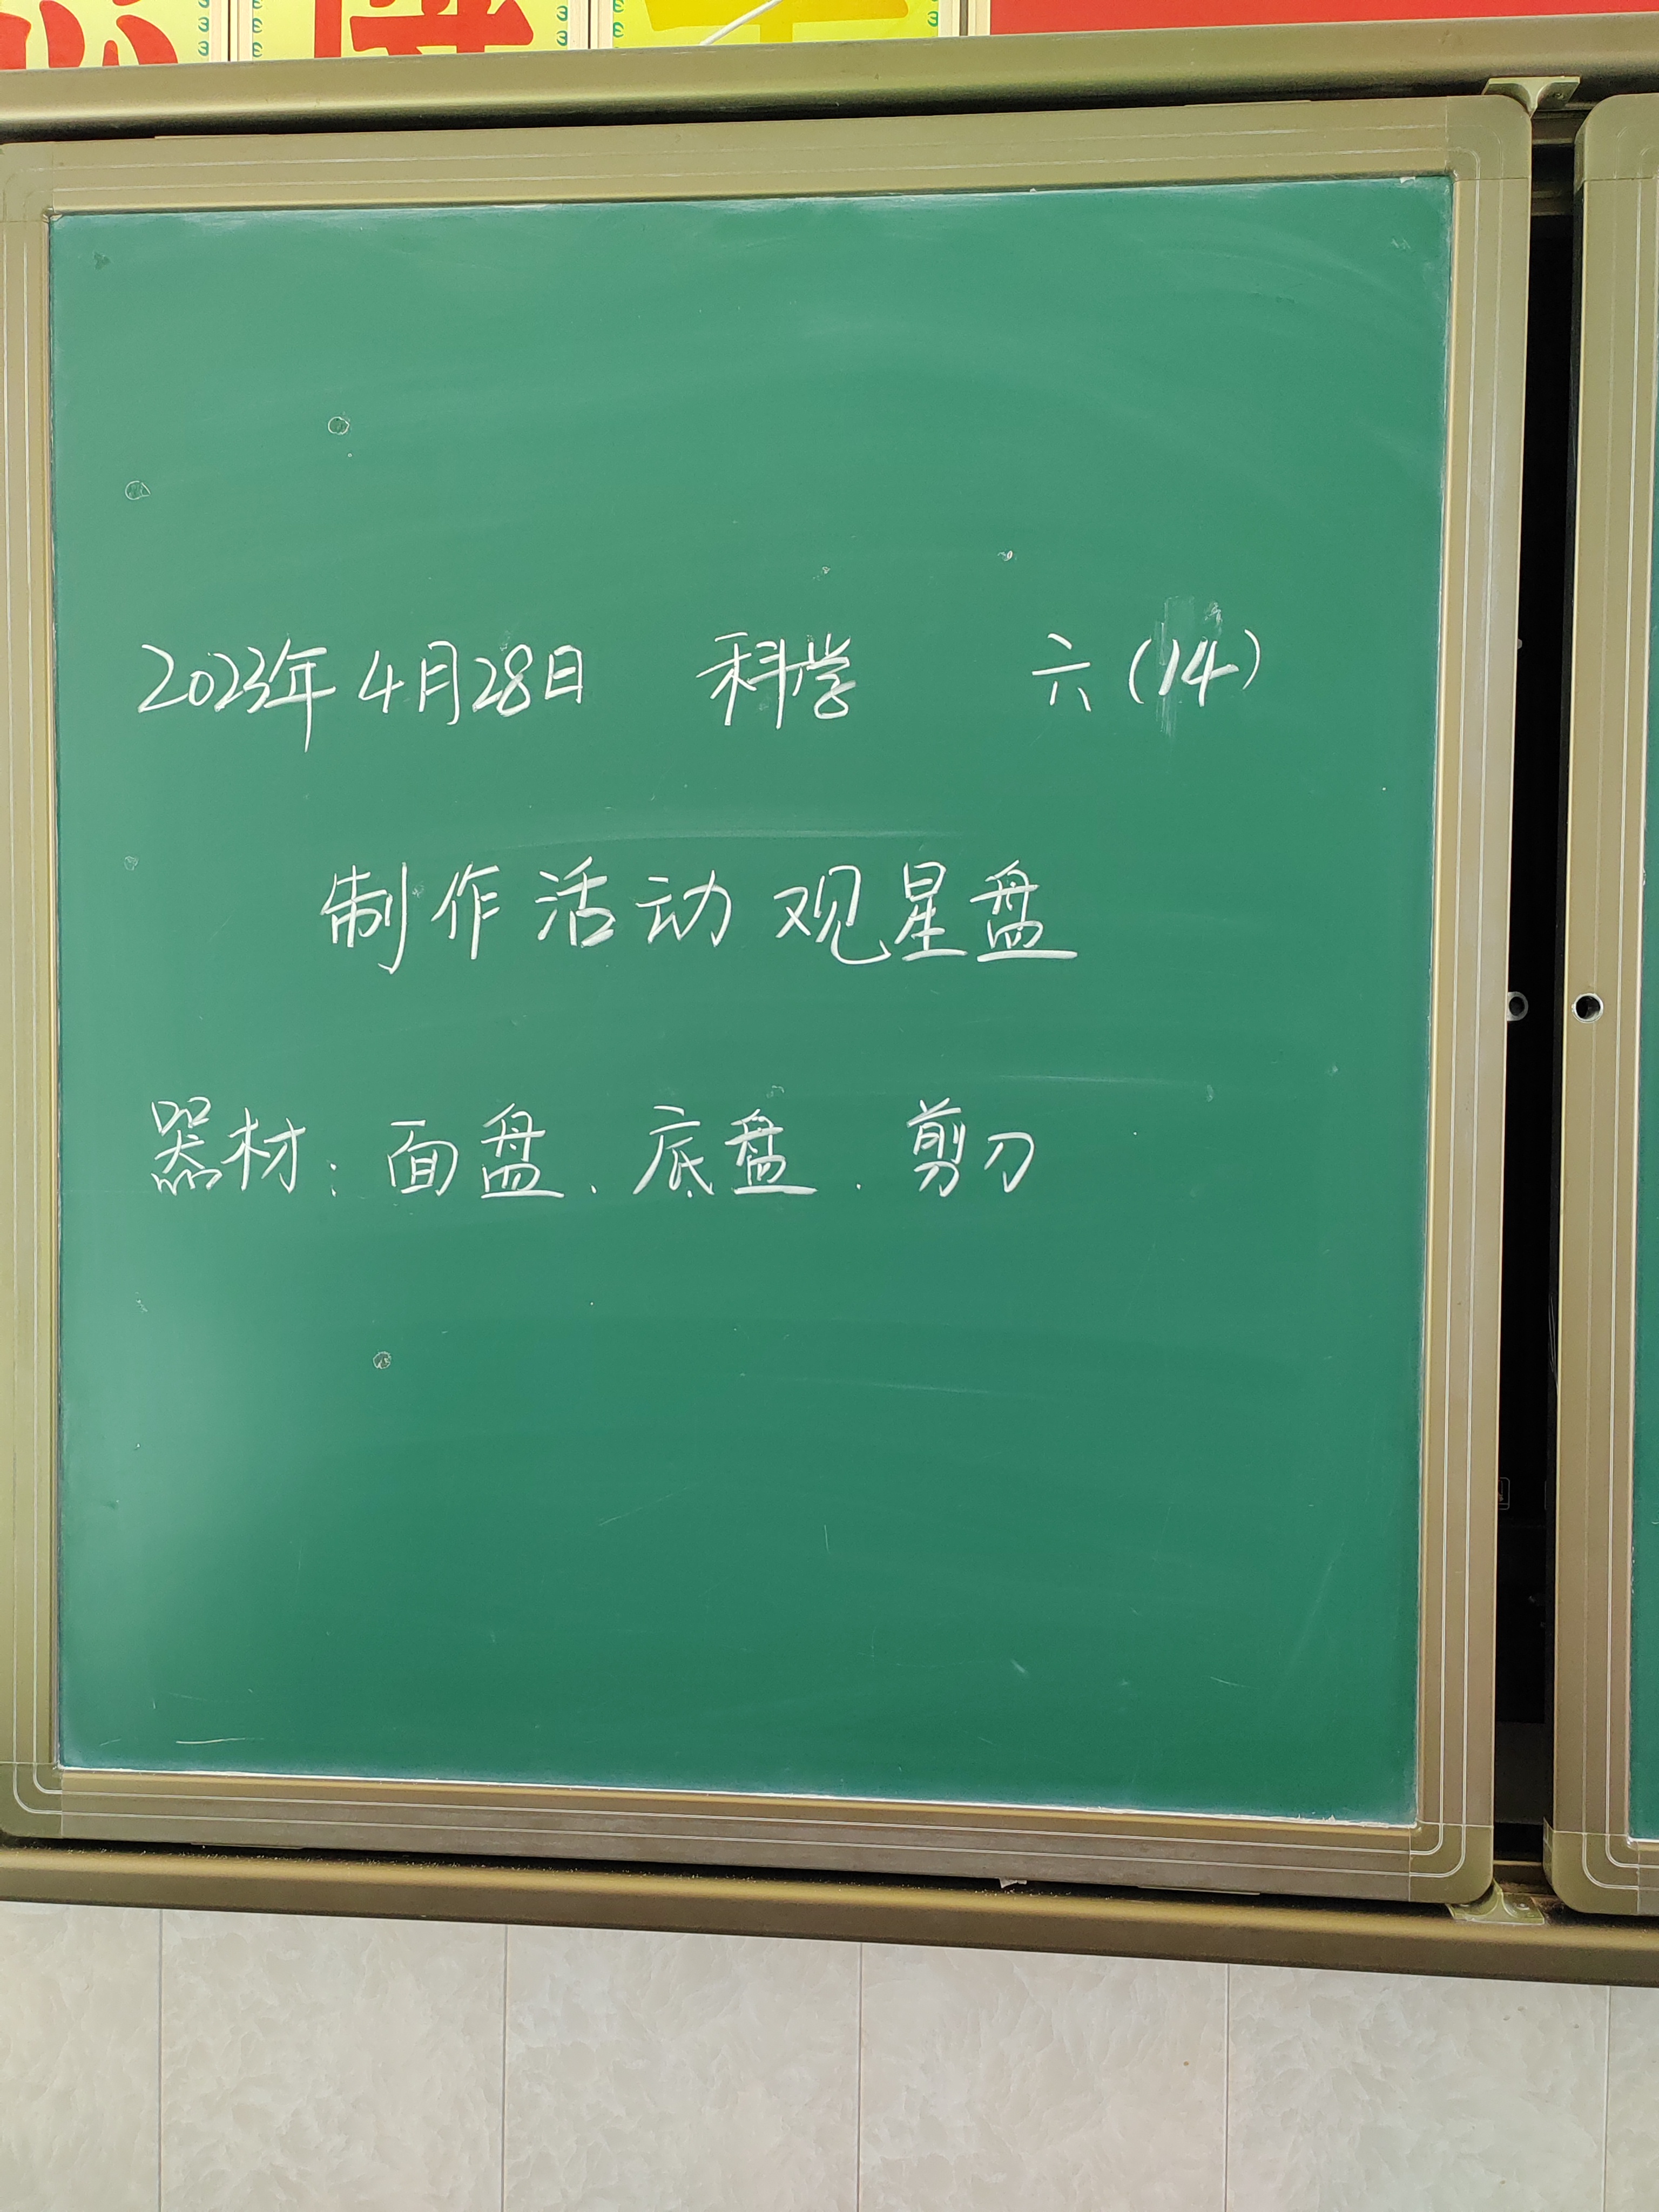 2023年4月28日 科学 六(14)
制作活动观星盘
器材:面盘、底盘、剪刀